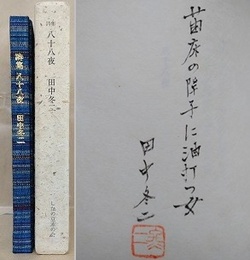 詩集 八十八夜 田中冬二
詩集 八十八夜 田中冬二
苗床の障子に油打つ女
田中冬二